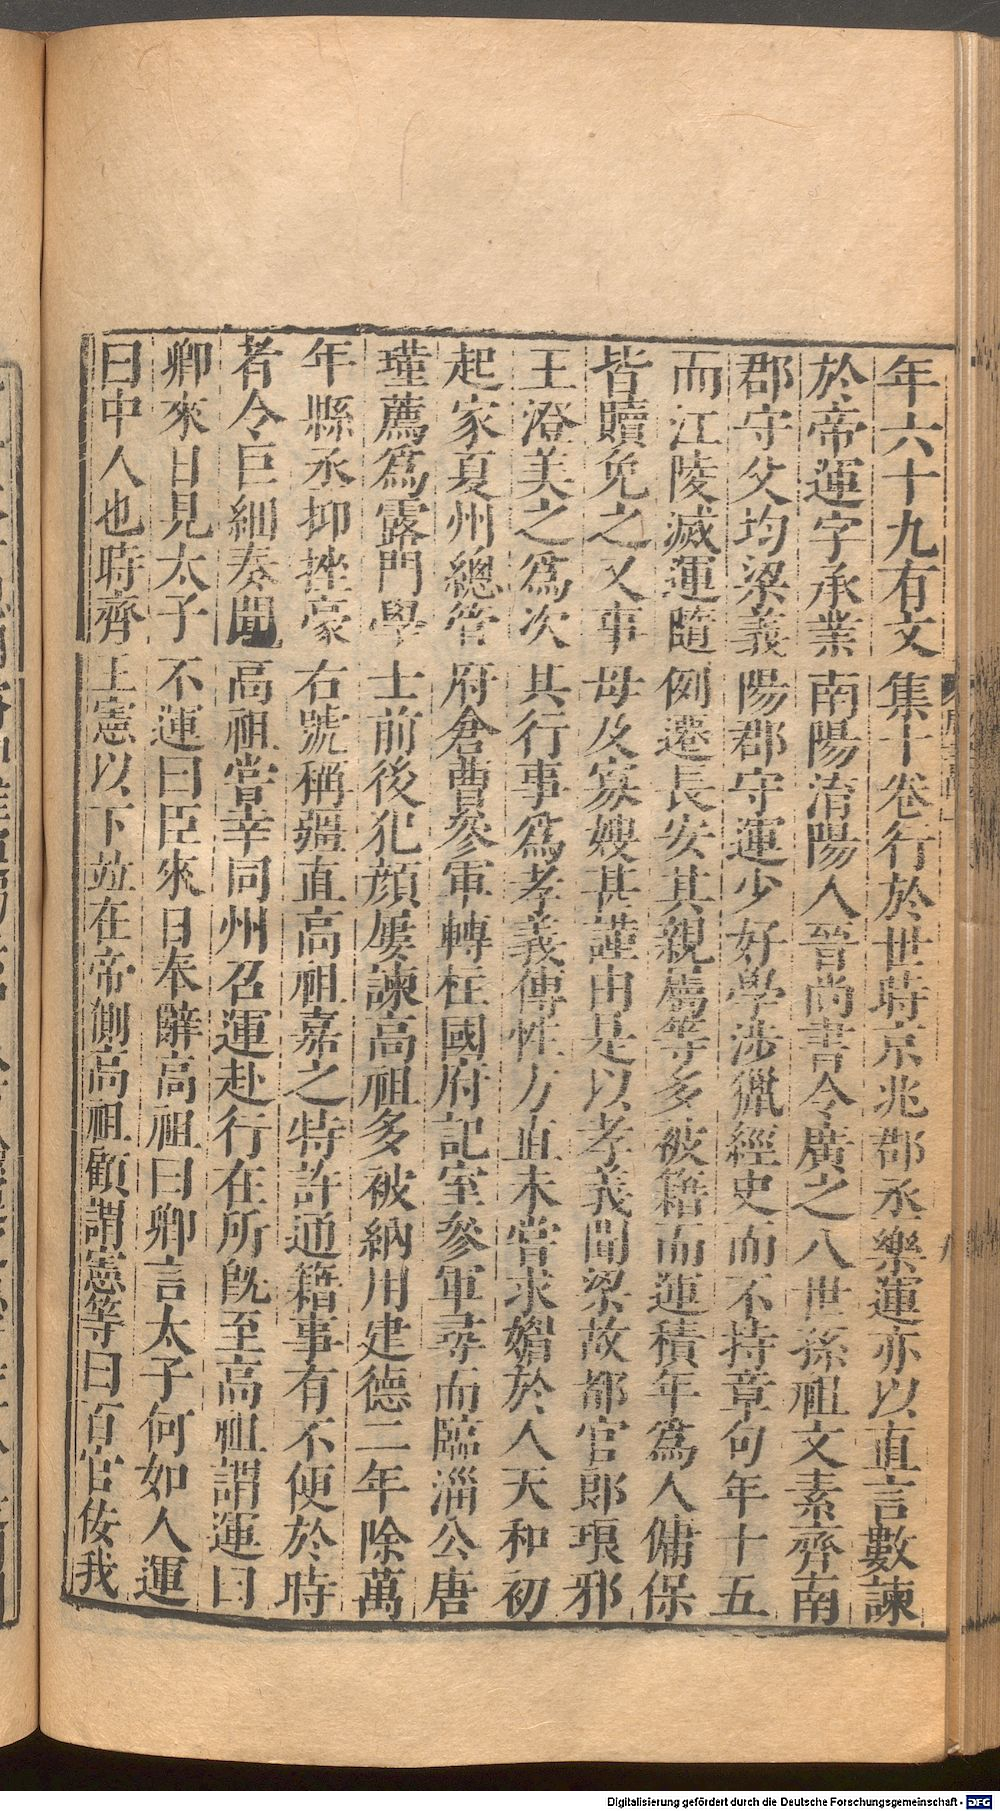 年六十九有文集十卷行於世時京兆郡丞樂運亦以直言數諫
於帝運字承業南陽淯陽人晉尚書令廣之八世孫祖文素齊南
郡守父均梁義陽郡守運少好學涉獵經史而不持章句年十五
而江陵滅運隨例遷長安其親屬等多被籍而運積年爲人傭保
皆贖免之又事母及寡嫂甚謹由是以孝義聞梁故都官郎琅邪
王澄美之爲次其行事爲孝義傳性方直未嘗求媚於人天和初
起家夏州總管府倉曹參軍轉柱國府記室參軍尋而臨淄公唐
瑾薦爲露門學士前後犯顏屢諫高祖多被納用建德二年除萬
年縣丞抑挫豪右號稱彊直高祖嘉之特許通籍事有不便於時
者令巨細奏聞高祖嘗幸同州召運赴行在所旣至高祖謂運曰
卿來日見太子不運曰臣來日奉辭高祖曰卿言太子何如人運
曰中人也時齊王憲以下竝在帝側高祖顧謂憲等曰百官佞我
Digitalisierung gefördert durch die Deutsche Forschungsgemeinschaft - DFG